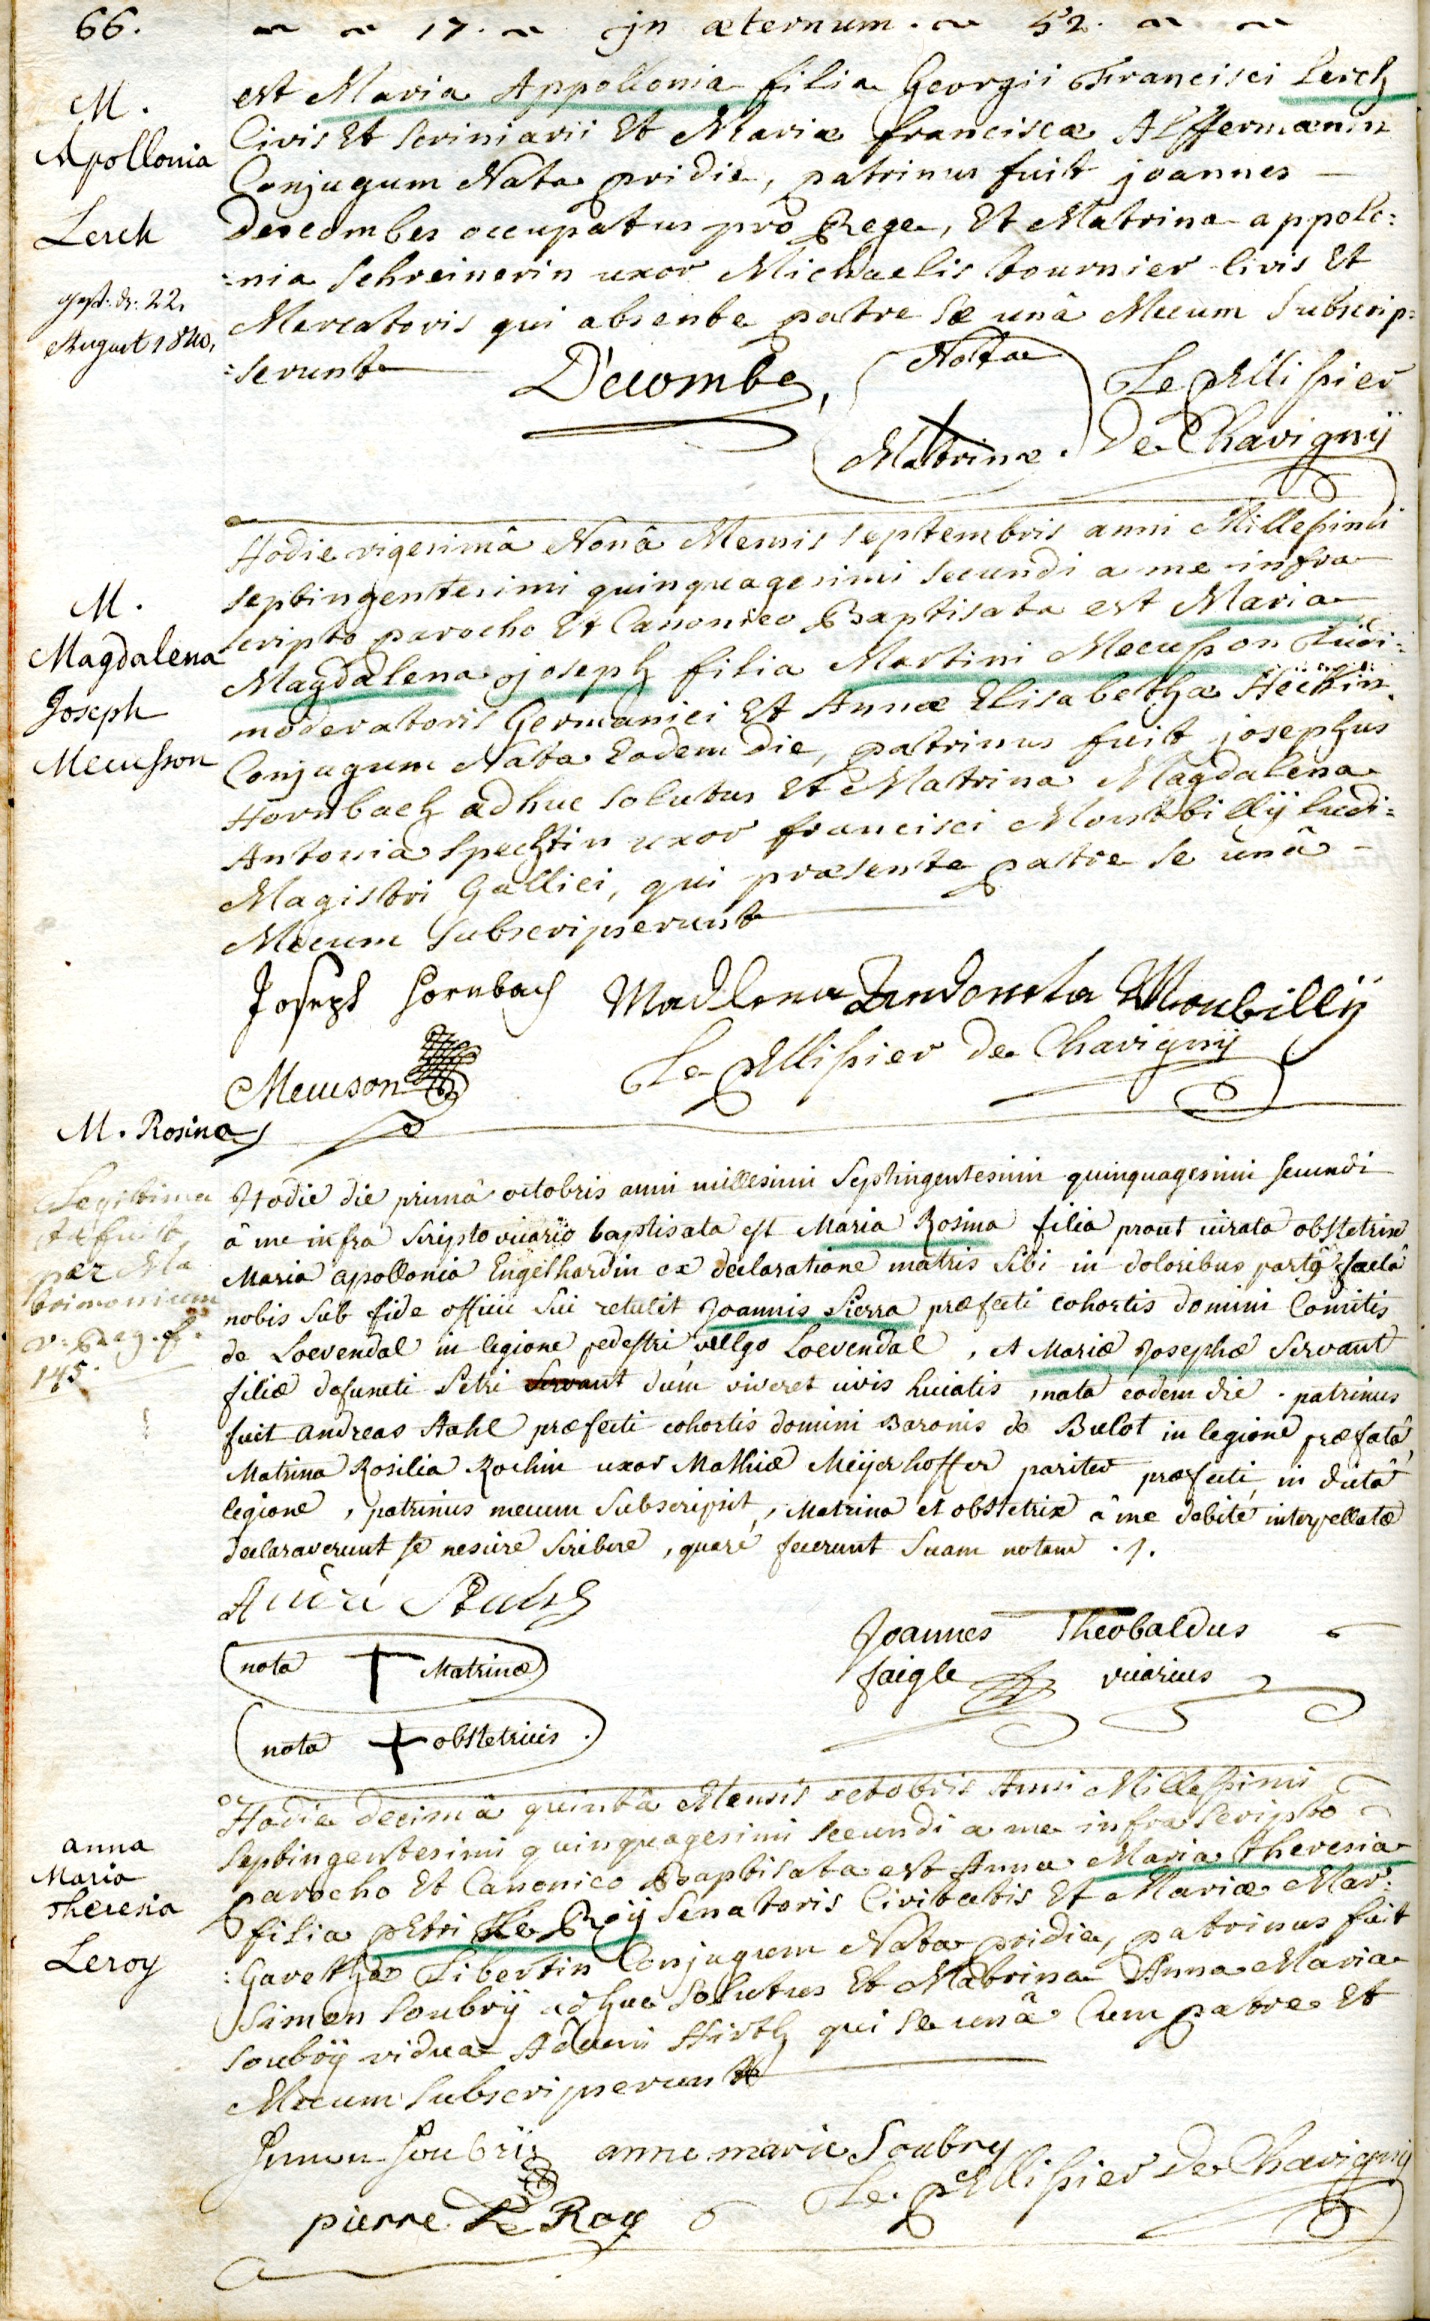 66. 17. in æternum. 52.
M.
Apollonia
Lerch
gest. d. 22.
August 1840,
est Maria Appollonia filia Georgii Francisci Lerch
Civis Et Scriniarii Et Mariæ franciscæ
Conjugum Nata pridie, patrinus fuit joannes
Descombes occupatus pro Rege, Et Matrina appolo:
:nia Schreinerin uxor Michaelis tournier Civis Et
Mercatoris qui absente patre se unâ Mecum Subscrip:
:serunt
D'ecombe,
Nota
Matrinæ.
Le pellissier
De Chavignÿ
M.
Magdalena
Joseph
Mecusson
Hodie vigesimâ Nonâ Mensis septembris anni Millesimi
septingentesimi quinquagesimi secundi a me infra
scripto parocho Et Canonico Baptisata est Maria
Magdalena joseph filia Martini Mecusson Ludi:
moderatoris Germanici Et Annæ Elisabethæ
Conjugum Nata Eodem die, patrinus fuit josephus
Hornbach adhuc solutus Et Matrina Magdalena
Antonia Spechtin uxor francisci Montbillÿ Ludi:
Magistri Gallici, qui præsente patre se unâ
Mecum Subscripserunt
Joseph Hornbach Madlena Montbillÿ
Mecuson
Le pellissier De Chavignÿ
M. Rosina
Legitima
per Ma
trimonium
v. pag. f.
145.
Hodie die primâ octobris anni millesimi Septingentesimi quinquagesimi secundi
â me infra Scripto vicario baptisata est Maria Rosina filia prout jurata obstetrix
Maria apollonia Engelhardin ex declaratione matris Sibi in doloribus partus factâ
nobis Sub fide officii Sui retulit Joannis Pierra præfecti cohortis domini Comitis
de Loevendal in legione pedestri vulgo Loevendal, et Mariæ Josephæ Servant
filiæ defuncti Petri Servant dum viveret civis huiatis, nata eodem die. patrinus
fuit andreas Stahl præfecti cohortis domini Baronis de Bulot in legione præfatâ,
Matrina Rosilia Rochin uxor Mathiæ Meÿerhoffer pariter præfecti in dictâ
legione, patrinus mecum Subscripsit, Matrina et obstetrix â me debite interpellatæ
declaraverunt se nescire Scribere, quare fecerunt Suam notam.
nota Matrinæ
nota obstetricis.
Joannes Theobaldus
faigle vicarius
anna
Maria
Theresia
Leroy
Hodie decimâ quintâ Mensis octobris Anni Millessimi
Septingentesimi quinquagesimi secundi a me infra Scripto
parocho Et Canonico Baptisata est Anna Maria Theresia
filia petri Le Roÿ Senatoris Civitatis Et Mariæ Mar:
:Garethæ Libertin Conjugum Nata pridie, patrinus fuit
Simon Soubrÿ adhuc Solutus Et Matrina Anna Maria
Soubrÿ vidua Adami Hirth qui se unâ Cum patre Et
Mecum Subscripserunt
Simon Soubrÿ anne marie Soubry
pierre Le Roy
Le pellissier De Chavignÿ